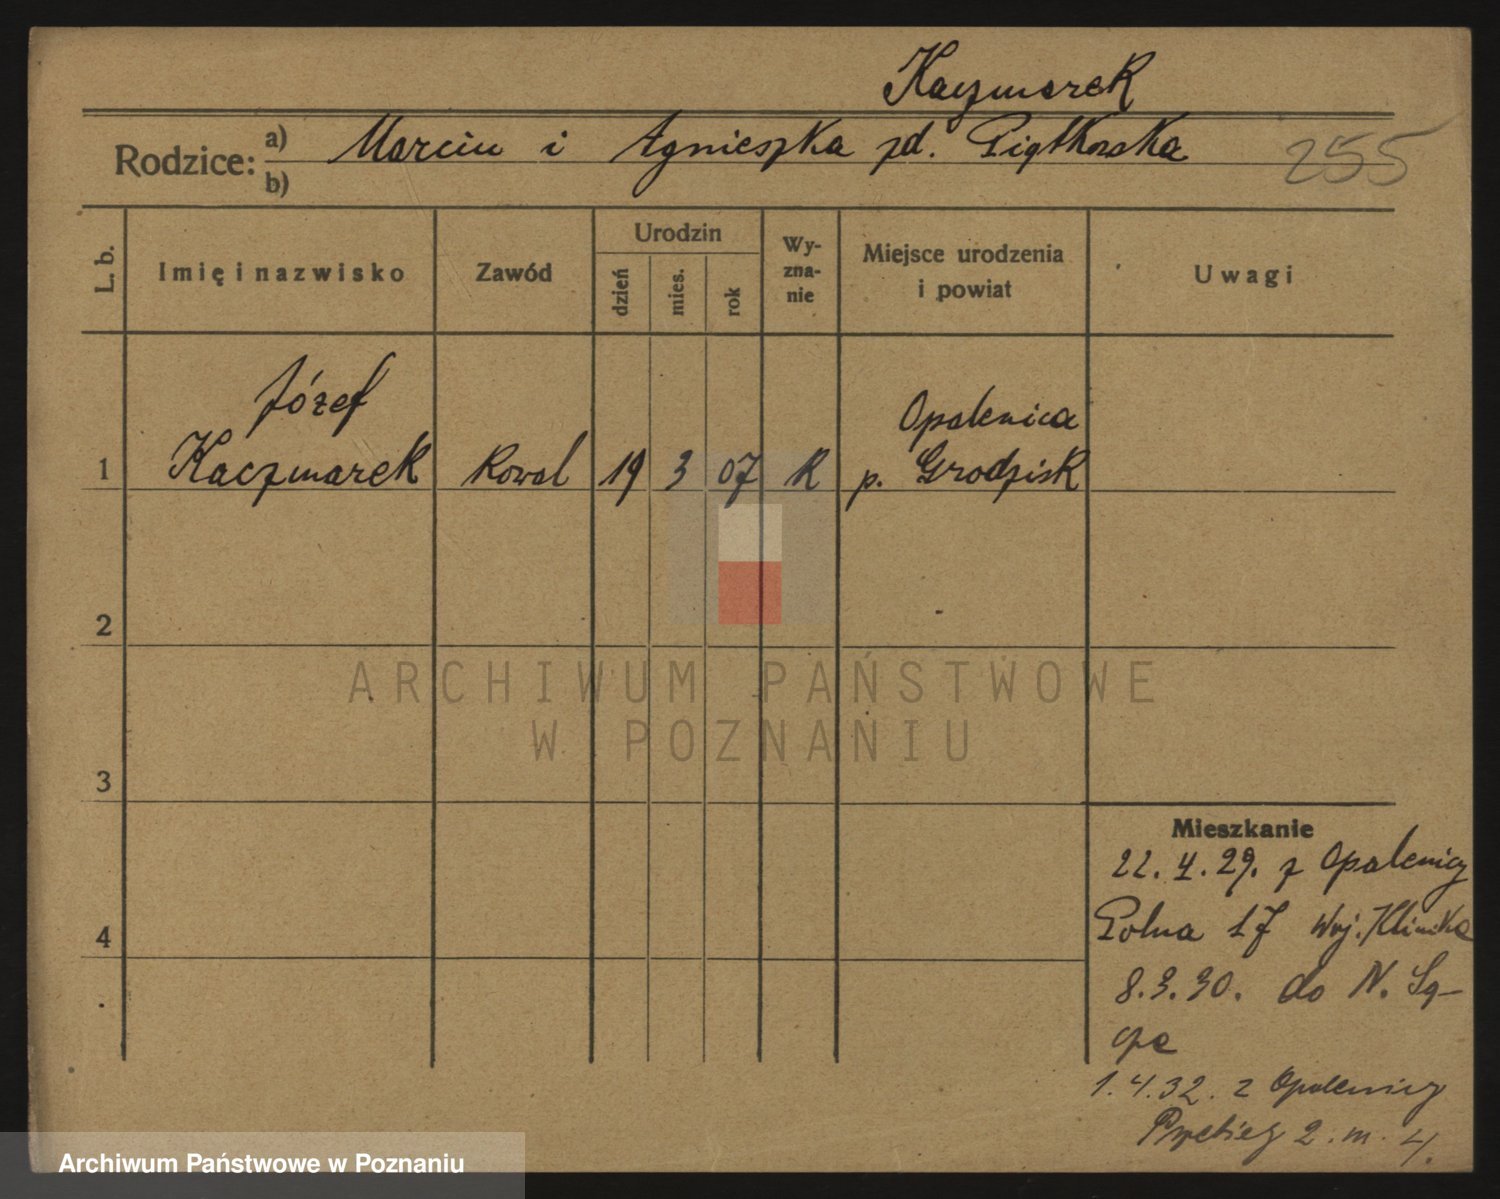 Kaczmarek
Rodzice: a) Marcin i Agnieszka zd. Piątkowska 255
b)
L. b. Imię i nazwisko Zawód Urodzin dzień mies. rok Wy-zna-nie Miejsce urodzenia i powiat Uwagi
Józef Opalenica
1 Kaczmarek Kowal 19 3 07 R p. Grodzisk
2
ARCHIWUM PAŃSTWOWE
W POZNANIU
3
Mieszkanie
22. 4. 29. z Opalenicy
4 Polna 17 Woj. Klinika
8. 3. 30. do N. Są-
opa
1. 4. 32. z Opalenicy
2. m. 4.
Archiwum Państwowe w Poznaniu